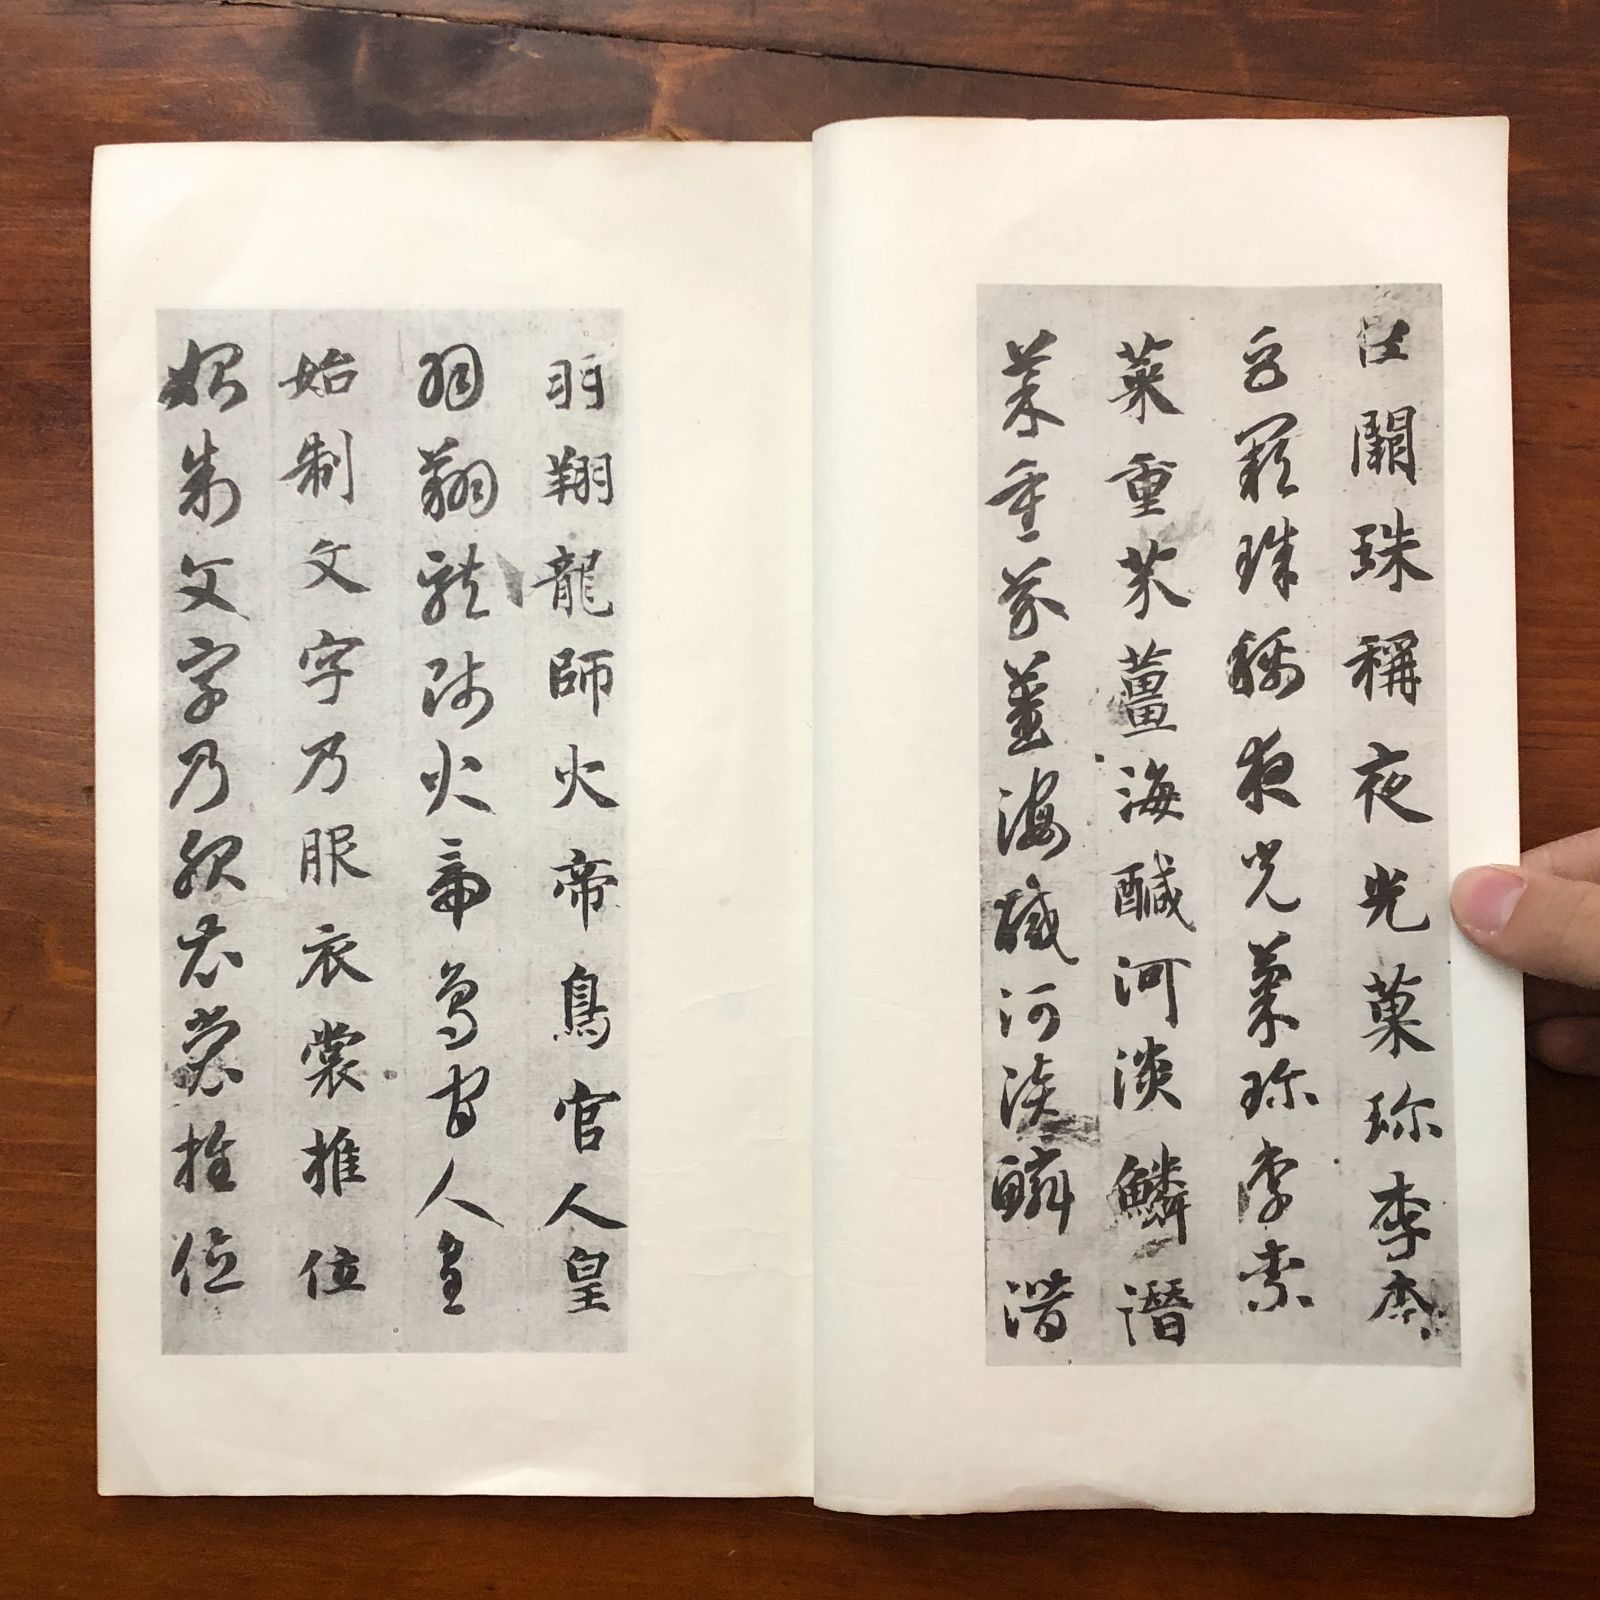 巨闕珠稱夜光菓珍李柰
巨闕珠稱夜光菓珍李柰
菜重芥薑海醎河淡鱗潛
菜重芥薑海醎河淡鱗潛
羽翔龍師火帝鳥官人皇
羽翔龍師火帝鳥官人皇
始制文字乃服衣裳推位
始制文字乃服衣裳推位